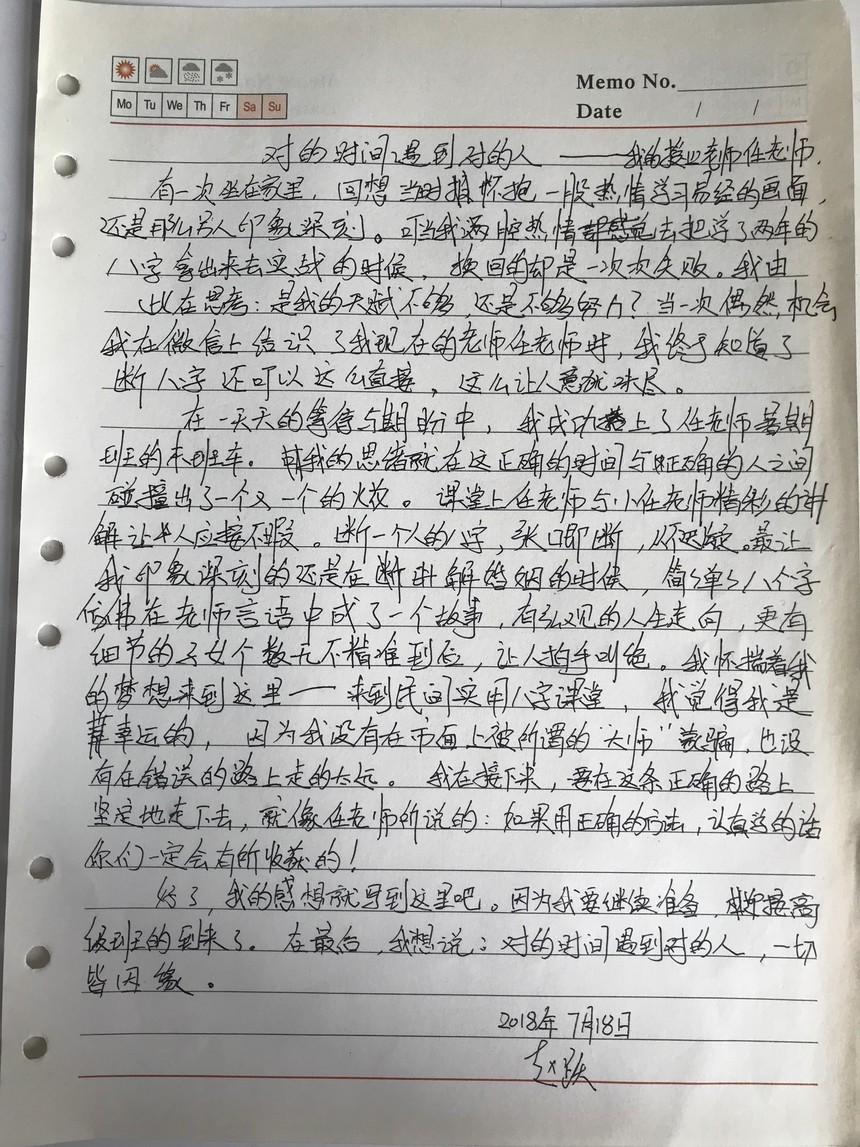 Mo Tu We Th Fr Sa Su
Memo No.
Date / /
对的时间遇到对的人 ——我的授业老师任老师.
有一次坐在家里，回想当时怀抱一股热情学习易经的画面,
还是那么另人印象深刻。可当我满腔热情去把学了两年的
八字拿出来去实战的时候，换回的却是一次次失败。我由
此在思考：是我的天赋不够，还是不够努力？当一次偶然机会
我在微信上结识了我现在的老师任老师时，我终于知道了
断八字还可以这么直接，这么让人意犹未尽。
在一天天的等待与期盼中，我成功搭上了任老师暑期
班的末班车。我的思绪就在这正确的时间与正确的人之间
碰撞出了一个又一个的火花。课堂上任老师与小任老师精彩的讲
解让人应接不暇。断一个人的八字，张口即断，从不迟疑。最让
我印象深刻的还是在断解婚姻的时候，简简单单八个字
仿佛在老师言语中成了一个故事，有宏观的人生走向，更有
细节的子女个数无不精准到位，让人拍手叫绝。我怀揣着我
的梦想来到这里——来到民间实用八字课堂，我觉得我是
幸运的，因为我没有在市面上被所谓的“大师”蒙骗，也没
有在错误的路上走的太远。我在接下来，要在这条正确的路上
坚定地走下去，就像任老师所说的：如果用正确的方法，认真学的话
你们一定会有所收获的！
好了，我的感想就写到这里吧。因为我要继续准备，迎接高
级班的到来了。在最后，我想说：对的时间遇到对的人，一切
皆因缘。
2018年7月18日
赵跃